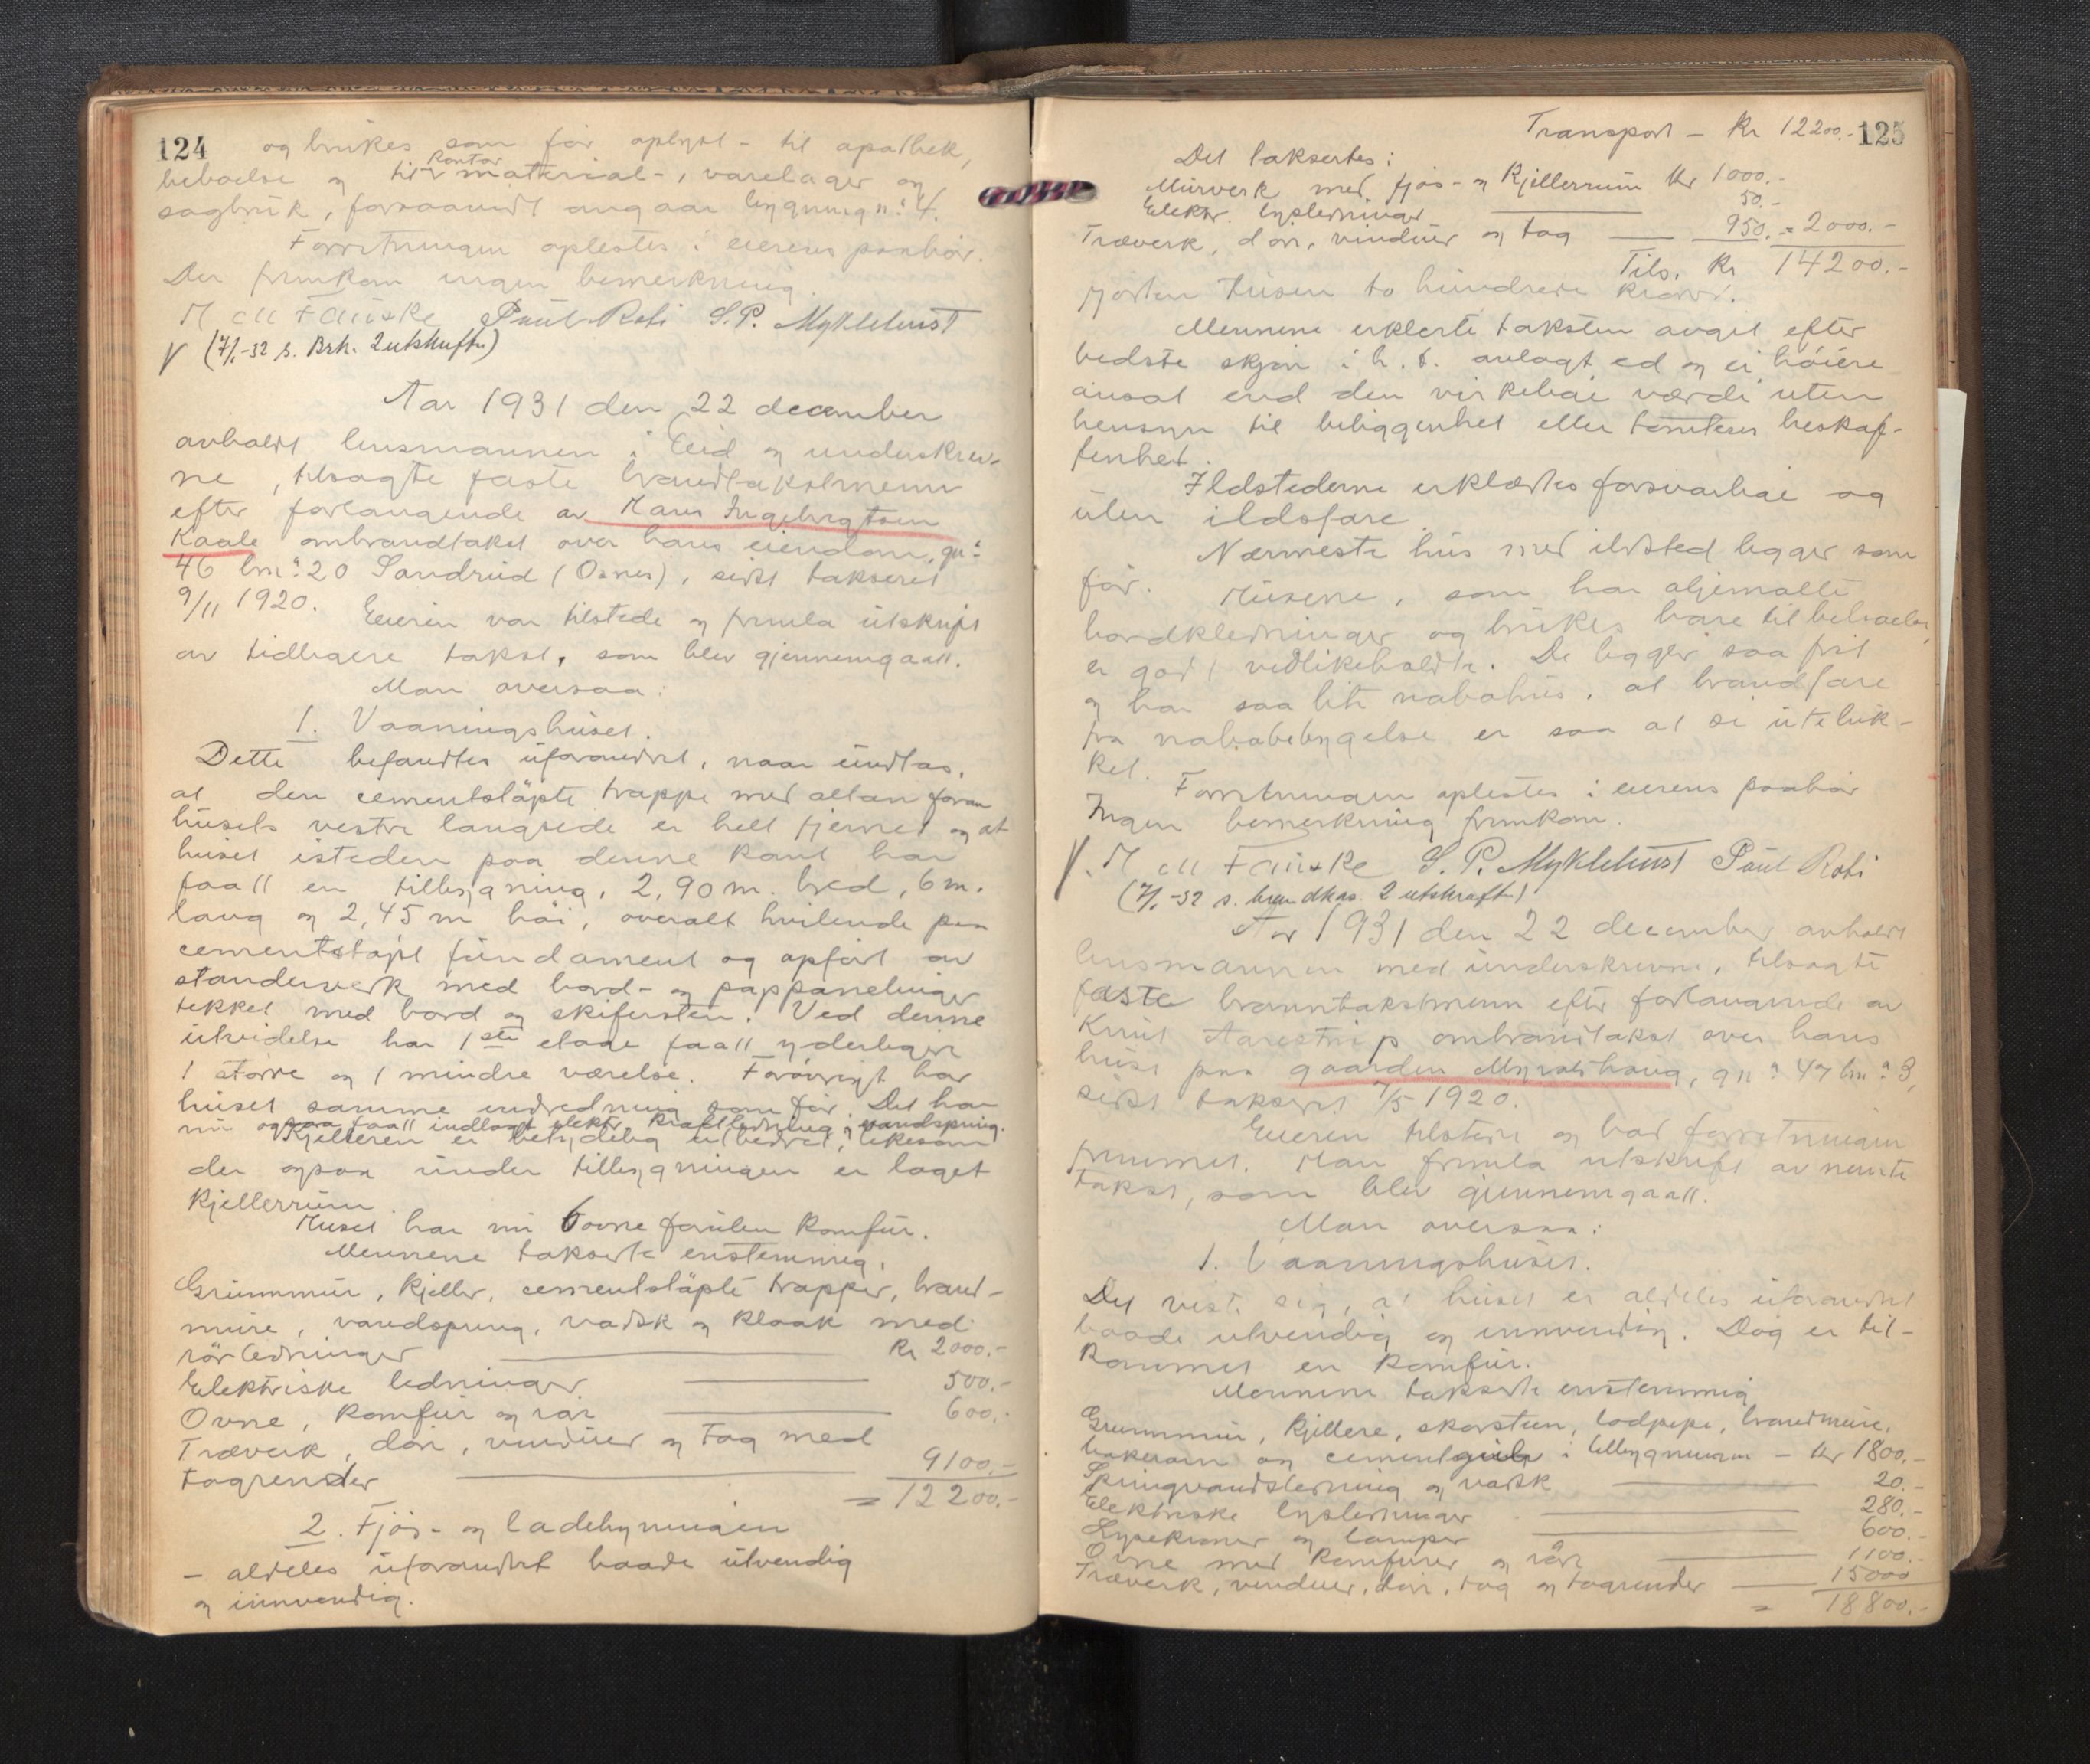 124
og brukes som før oplyst - til apothek,
kontor
beboelse og til material-, varelager og
sagbruk, forsaavidt angaar bygning n: 4.
Forretningen oplestes i eierens paahør.
Der fremkom ingen bemerkning.
M au Fauske Paul Roti S. P. Myklebust
V (7/1-32 s. Brk. 2 utskrifter)
Aar 1931 den 22 december
avholdt lensmannen i Eid og underskrev-
ne, tilsagte faste brandtakstmenn
efter forlangende av Hans Ingebrigtsen
Kaale ombrandtakst over hans eiendom, gn:
46 bn: 20 Sandrud (Osnes), sidst takseret
9/11 1920.
Eieren var tilstede og fremla utskrift
av tidligere takst, som blev gjennemgaatt.
Man oversaa:
1. Vaaningshuset.
Dette befandtes uforandret, naar undtas,
at den cementstøpte trappe med altan foran
husets vestre langside er helt fjernet og at
huset isteden paa denne kant har
faatt en tilbygning, 2,90 m. bred, 6 m.
lang og 2,45 m høi, overalt hvilende paa
cementstøpt fundament og opført av
standerverk med bord- og pappanelinger
tekket med bord og skifersten. Ved denne
utvidelse har 1ste etage faatt yderligere
1 større og 1 mindre værelse. Forøvrigt har
huset samme indredning som før. Det har
nu ogsaa faatt indlagt elektr. kraftledning og vandspring.
Kjelleren er betydelig utbedret, likesom
der ogsaa under tilbygningen er laget
kjellerrum.
Huset har nu 6 ovne foruten komfur.
Mennene takserte enstemmig:
Grunnmur, kjeller, cementstøpte trapper, brand-
mure, vandspring, vadsk og kloak med
rørledninger Kr 2000.-
Elektriske ledninger 500.-
Ovne, komfur og rør 600.-
Træverk, dør, vinduer og tag med
tagrender 9100.-
= 12200.-
2. Fjøs- og ladebyningen
- aldeles uforandret baade utvendig
og innvendig.
125
Transport - Kr 12200.-
Det taksertes:
Murverk med fjøs- og kjellerrum Kr 1000.-
Elektr. lysledninger 50.-
Træverk, dør, vinduer og tag 950.- = 2000.-
Tils. Kr 14200.-
Fjorten tusen to hundrede kroner.
Mennene erklerte taksten avgit efter
bedste skjøn i h. t. avlagt ed og ei høiere
ansat end den virkelige værdi uten
hensyn til beliggenhet eller tomtens beskaf-
fenhet.
Ildstederne erklærtes forsvarlige og
uten ildsfare.
Nærmeste hus med ildsted ligger som
før.
Husene, som har oljemalte
bordkledninger og brukes bare til beboelse,
er godt vedlikeholdte. De ligger saa frit
og har saa lite nabohus, at brandfare
fra nabobebygelse er saa at si uteluk-
ket.
Forretningen oplestes i eierens paahør
Ingen bemerkning fremkom.
V. M au Fauske S. P. Myklebust Paul Roti
(7/1-32 s. brandkas. 2 utskrifter)
Aar 1931 den 22 december avholdt
lensmannen med underskrevne, tilsagte
faste branntakstmenn efter forlangende av
Knut Aarestrup ombrandtakst over hans
huse paa gaarden Myrolshaug, gn: 47 bn: 3,
sidst takseret 7/5 1920.
Eieren tilstede og bad forretningen
fremmet. Man fremla utskrift av nemte
takst, som blev gjennemgaatt.
Man oversaa:
1. Vaaningshuset.
Det viste sig, at huset er aldeles uforandret
baade utvendig og innvendig. Dog er til-
kommet en komfur.
Mennene takserte enstemmig
Grunnmur, kjellere, skorsteen, lodpipe, brandmure,
bakerovn og cementgulv i tilbygningen - Kr 1800.-
Springvandsledning og vadsk 20.-
Elektriske lysledninger 280.-
Lysekroner og lamper 600.-
Ovne med komfurer og rør 1100.-
Træverk, vinduer, dør, tag og tagrender 15000
= 18800.-